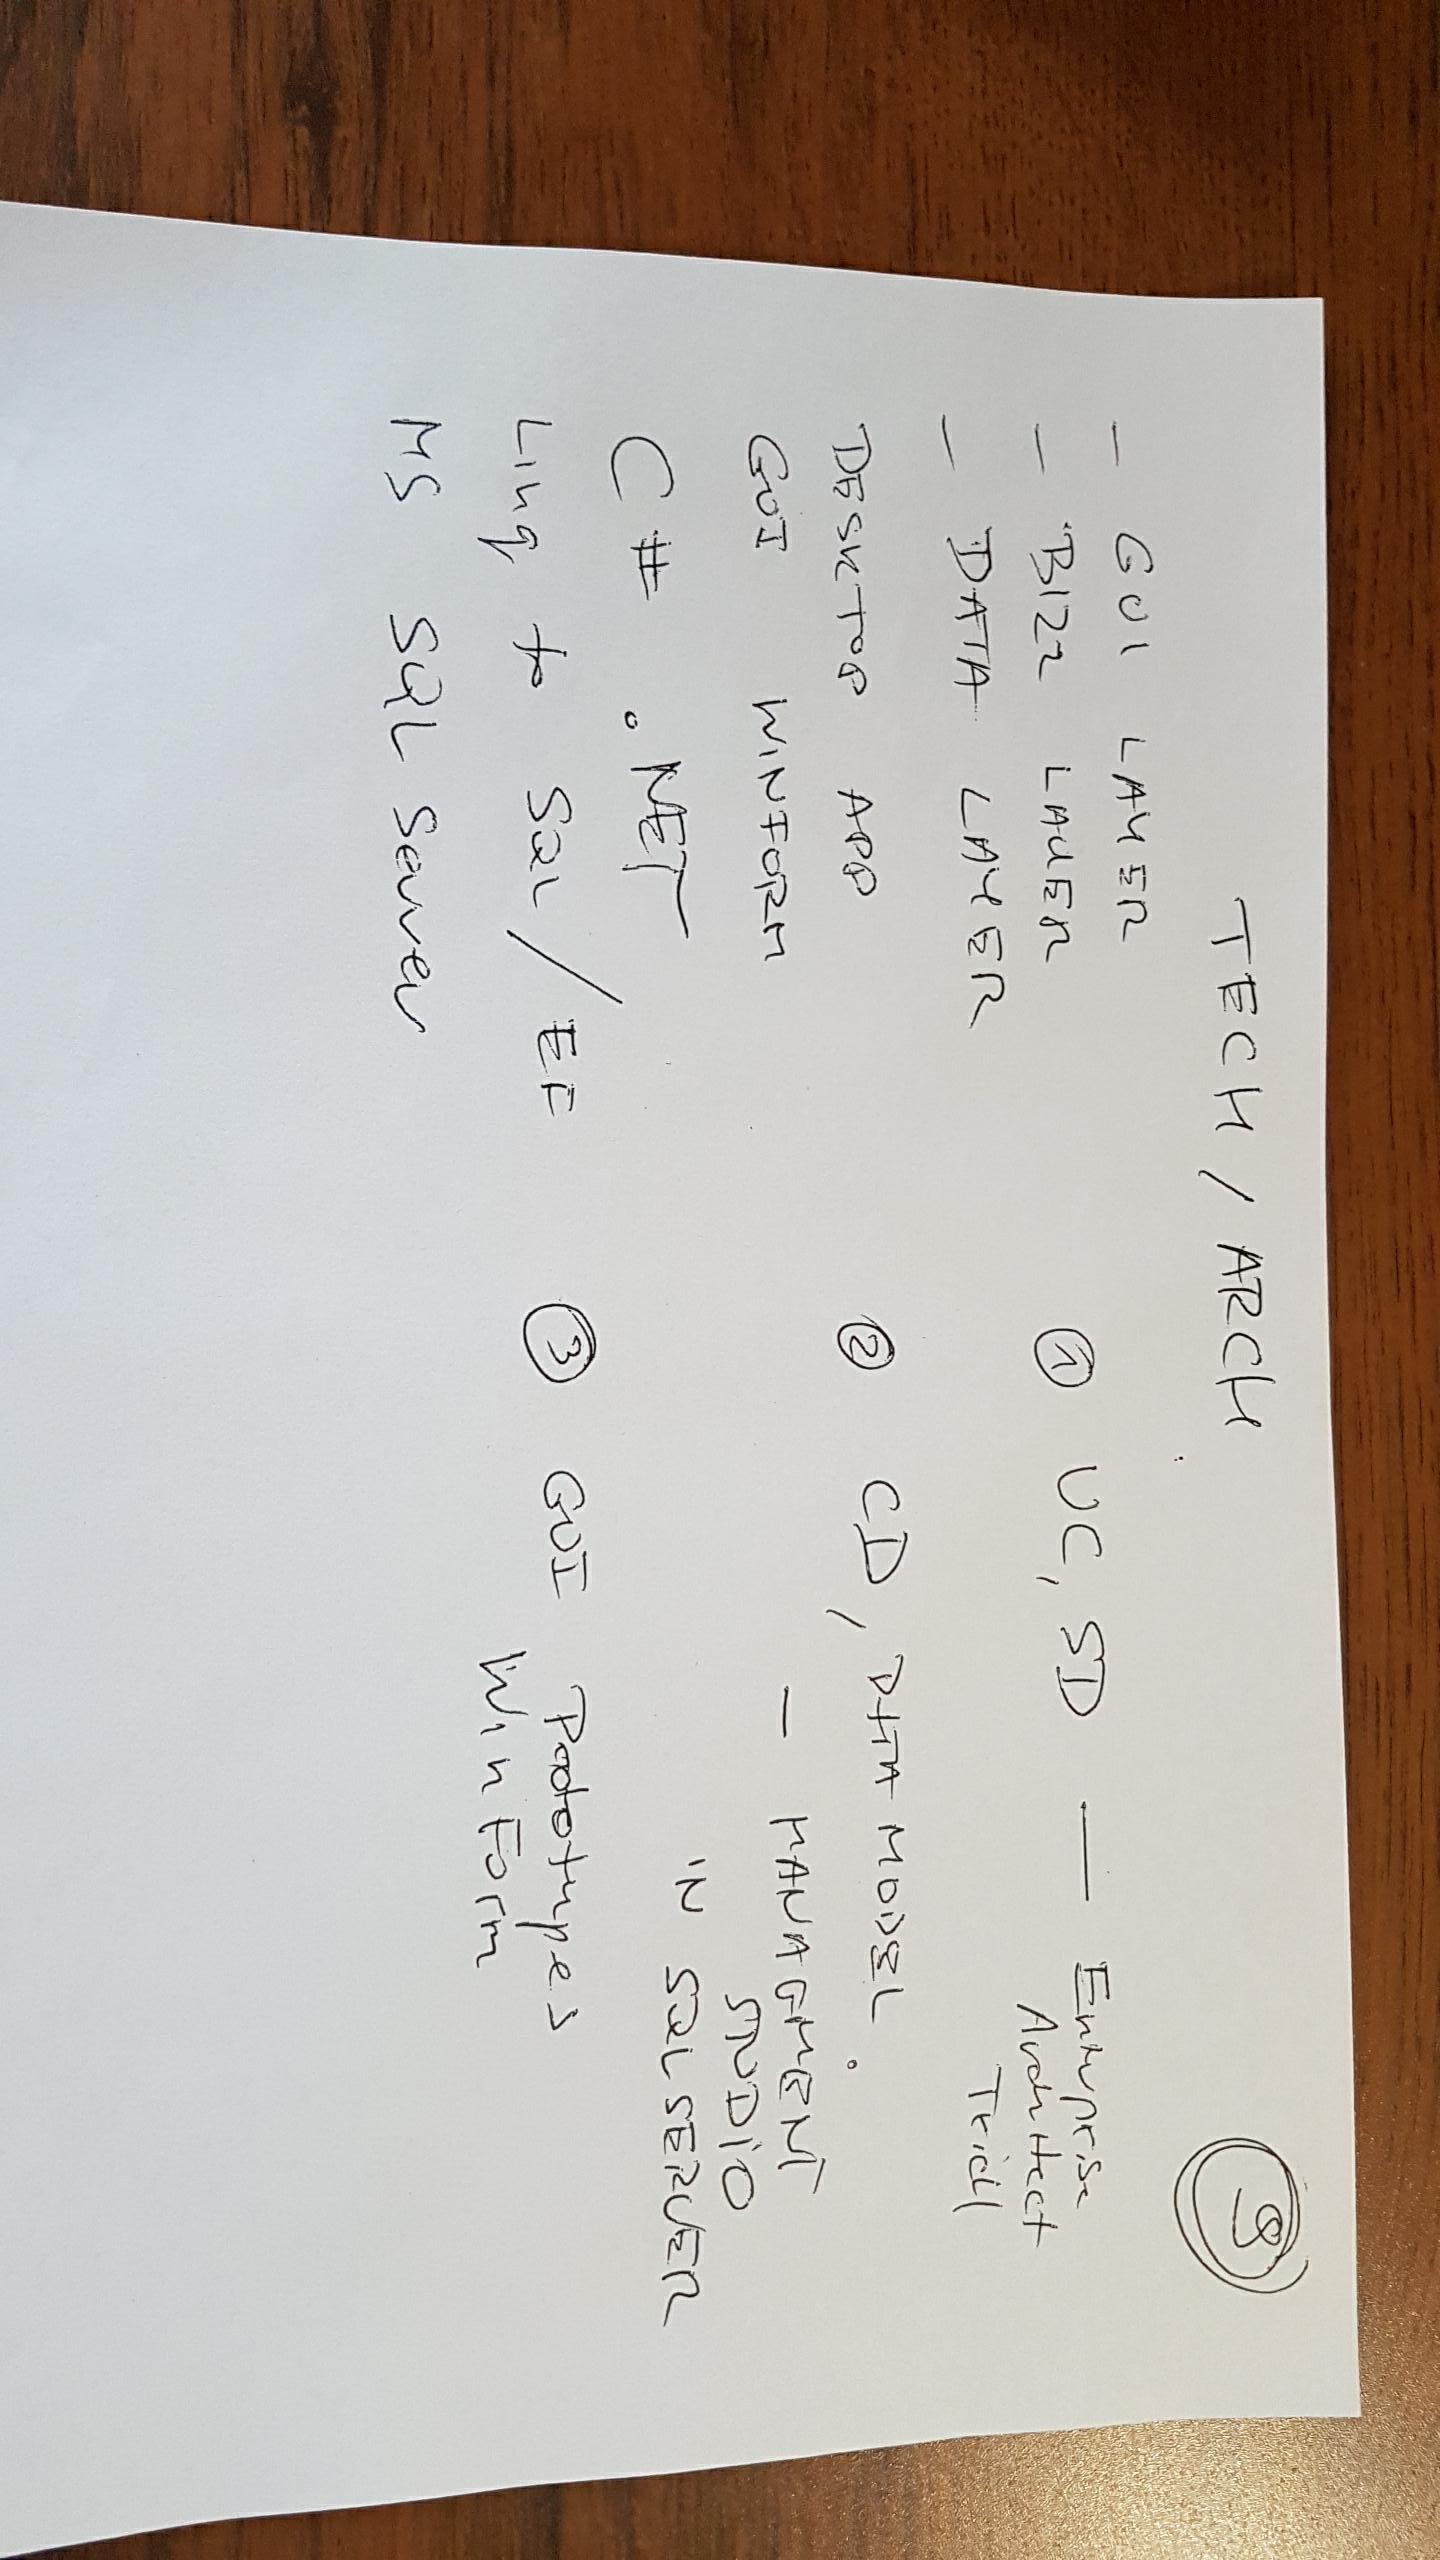 TECH / ARCH
9
- GUI LAYER
- BIZZ LAYER
- DATA LAYER
DESKTOP APP
GUI WINFORM
C# .NET
Linq to SQL / EF
MS SQL Server
1 UC, SD — Enterprise
Architect
Trial
2 CD, DATA MODEL.
- MANAGMENT
STUDIO
IN SQL SERVER
3 GUI Prototypes
WinForm